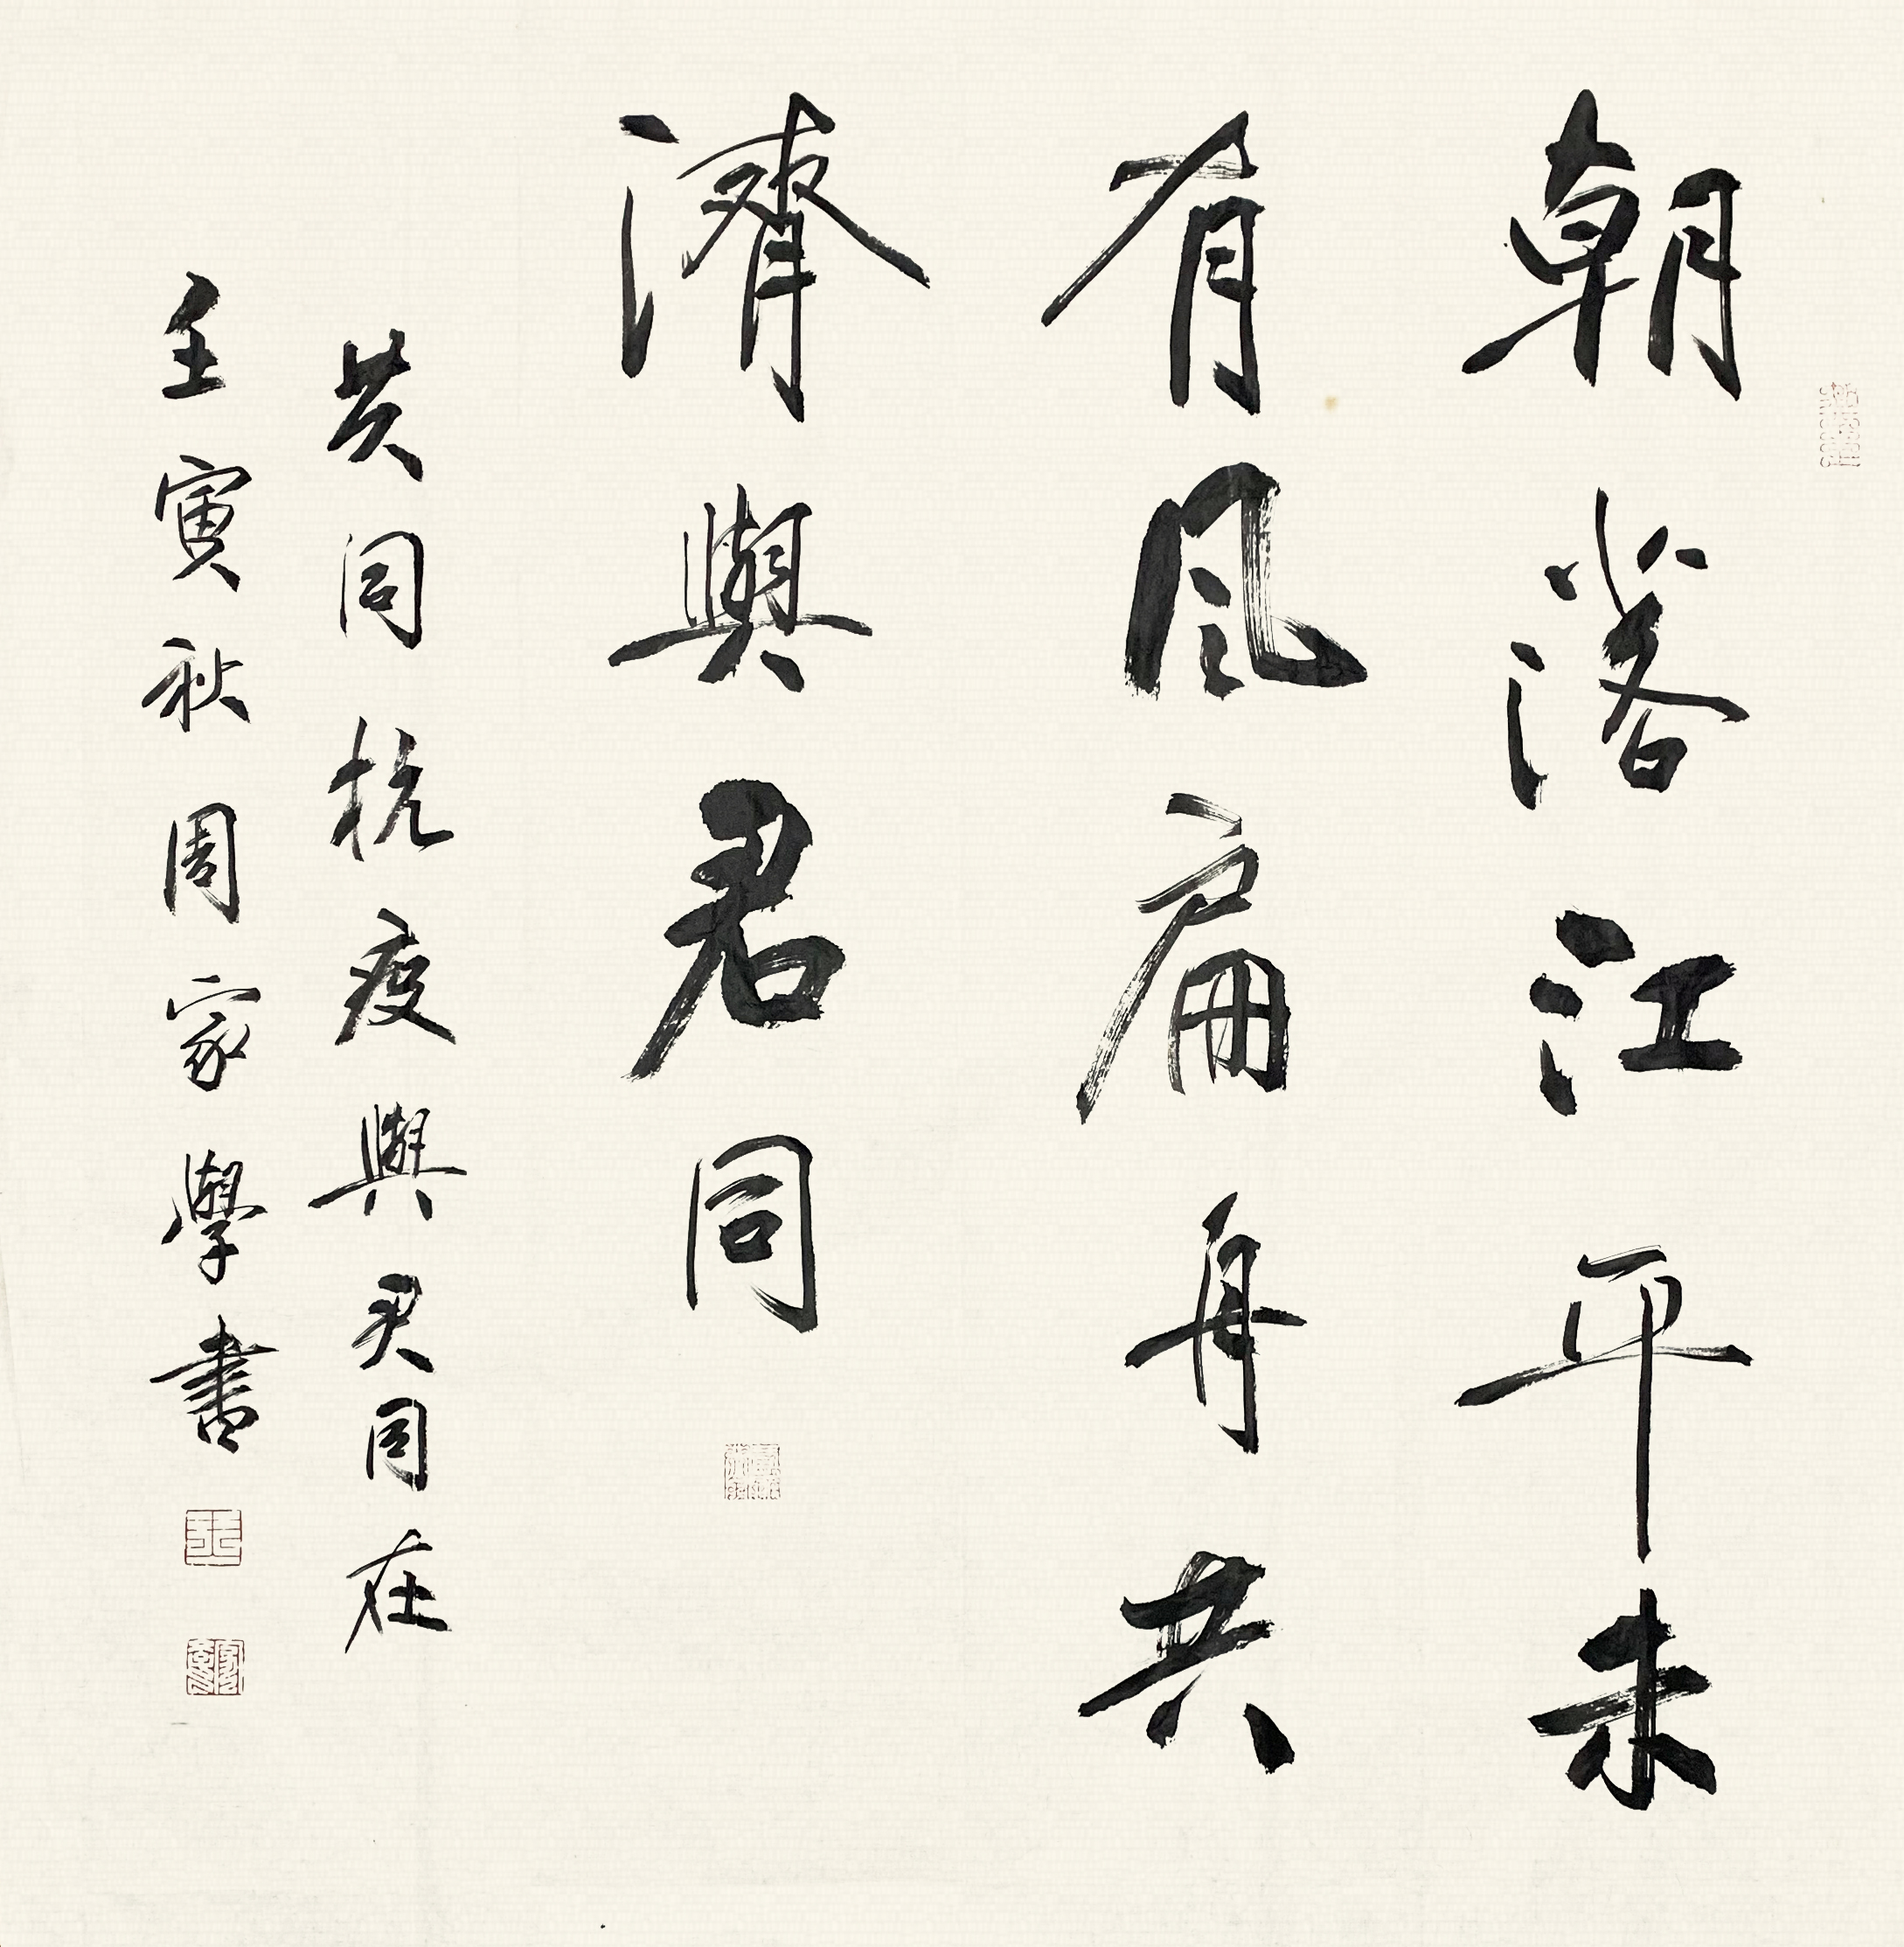 朝落江平未
有風扁舟共
濟與君同
共同抗疫與君同在
壬寅秋周家學書